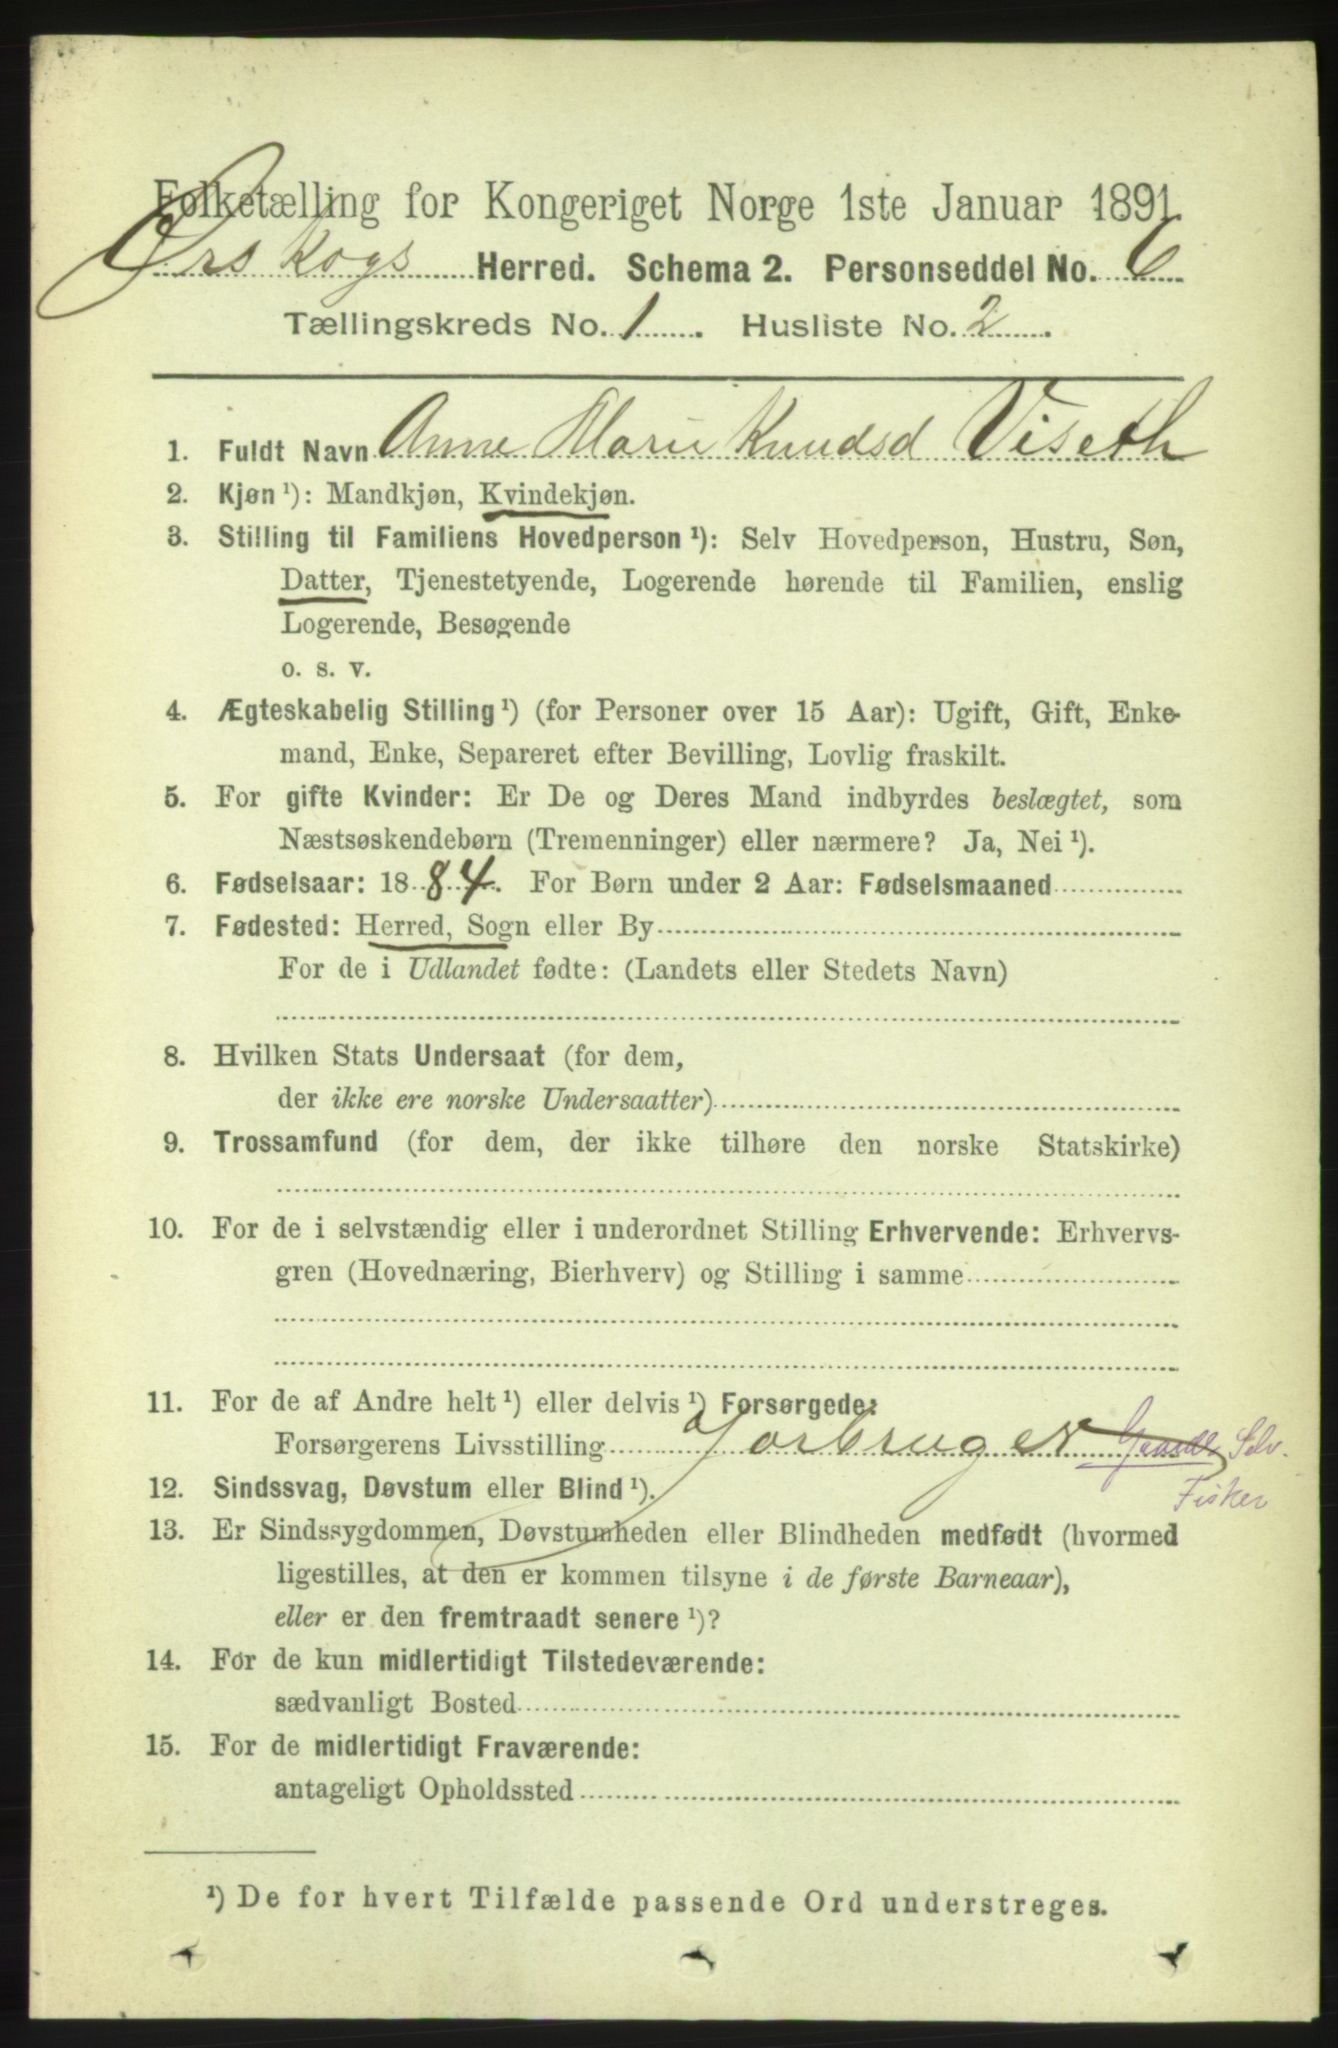 Folketælling for Kongeriget Norge 1ste Januar 1891.
Ørskogs Herred. Schema 2. Personseddel No. 6
Tællingskreds No. 1. Husliste No. 2.
1. Fuldt Navn Anne Marie Knudsd Viseth
2. Kjøn ¹): Mandkjøn, Kvindekjøn.
3. Stilling til Familiens Hovedperson ¹): Selv Hovedperson, Hustru, Søn,
Datter, Tjenestetyende, Logerende hørende til Familien, enslig
Logerende, Besøgende
o. s. v.
4. Ægteskabelig Stilling ¹) (for Personer over 15 Aar): Ugift, Gift, Enke-
mand, Enke, Separeret efter Bevilling, Lovlig fraskilt.
5. For gifte Kvinder: Er De og Deres Mand indbyrdes beslægtet, som
Næstsøskendebørn (Tremenninger) eller nærmere? Ja, Nei ¹).
6. Fødselsaar: 1884. For Børn under 2 Aar: Fødselsmaaned
7. Fødested: Herred, Sogn eller By
For de i Udlandet fødte: (Landets eller Stedets Navn)
8. Hvilken Stats Undersaat (for dem,
der ikke ere norske Undersaatter)
9. Trossamfund (for dem, der ikke tilhøre den norske Statskirke)
10. For de i selvstændig eller i underordnet Stilling Erhvervende: Erhvervs-
gren (Hovednæring, Bierhverv) og Stilling i samme
11. For de af Andre helt ¹) eller delvis ¹) Forsørgede:
Forsørgerens Livsstilling Jorbruger Selv.
Fisker
12. Sindssvag, Døvstum eller Blind ¹).
13. Er Sindssygdommen, Døvstumheden eller Blindheden medfødt (hvormed
ligestilles, at den er kommen tilsyne i de første Barneaar),
eller er den fremtraadt senere ¹)?
14. For de kun midlertidigt Tilstedeværende:
sædvanligt Bosted
15. For de midlertidigt Fraværende:
antageligt Opholdssted
¹) De for hvert Tilfælde passende Ord understreges.